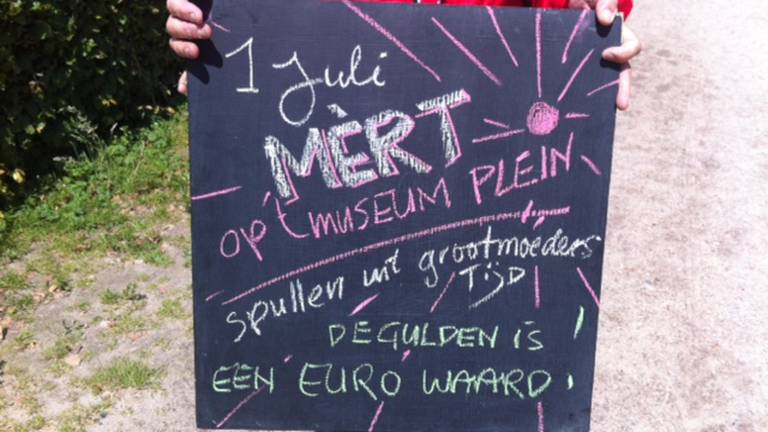 1 Juli
MÈRT
op 't MUSEUM PLEIN
spullen uit grootmoeders
TIJD
DE GULDEN is
EEN EURO WAARD!